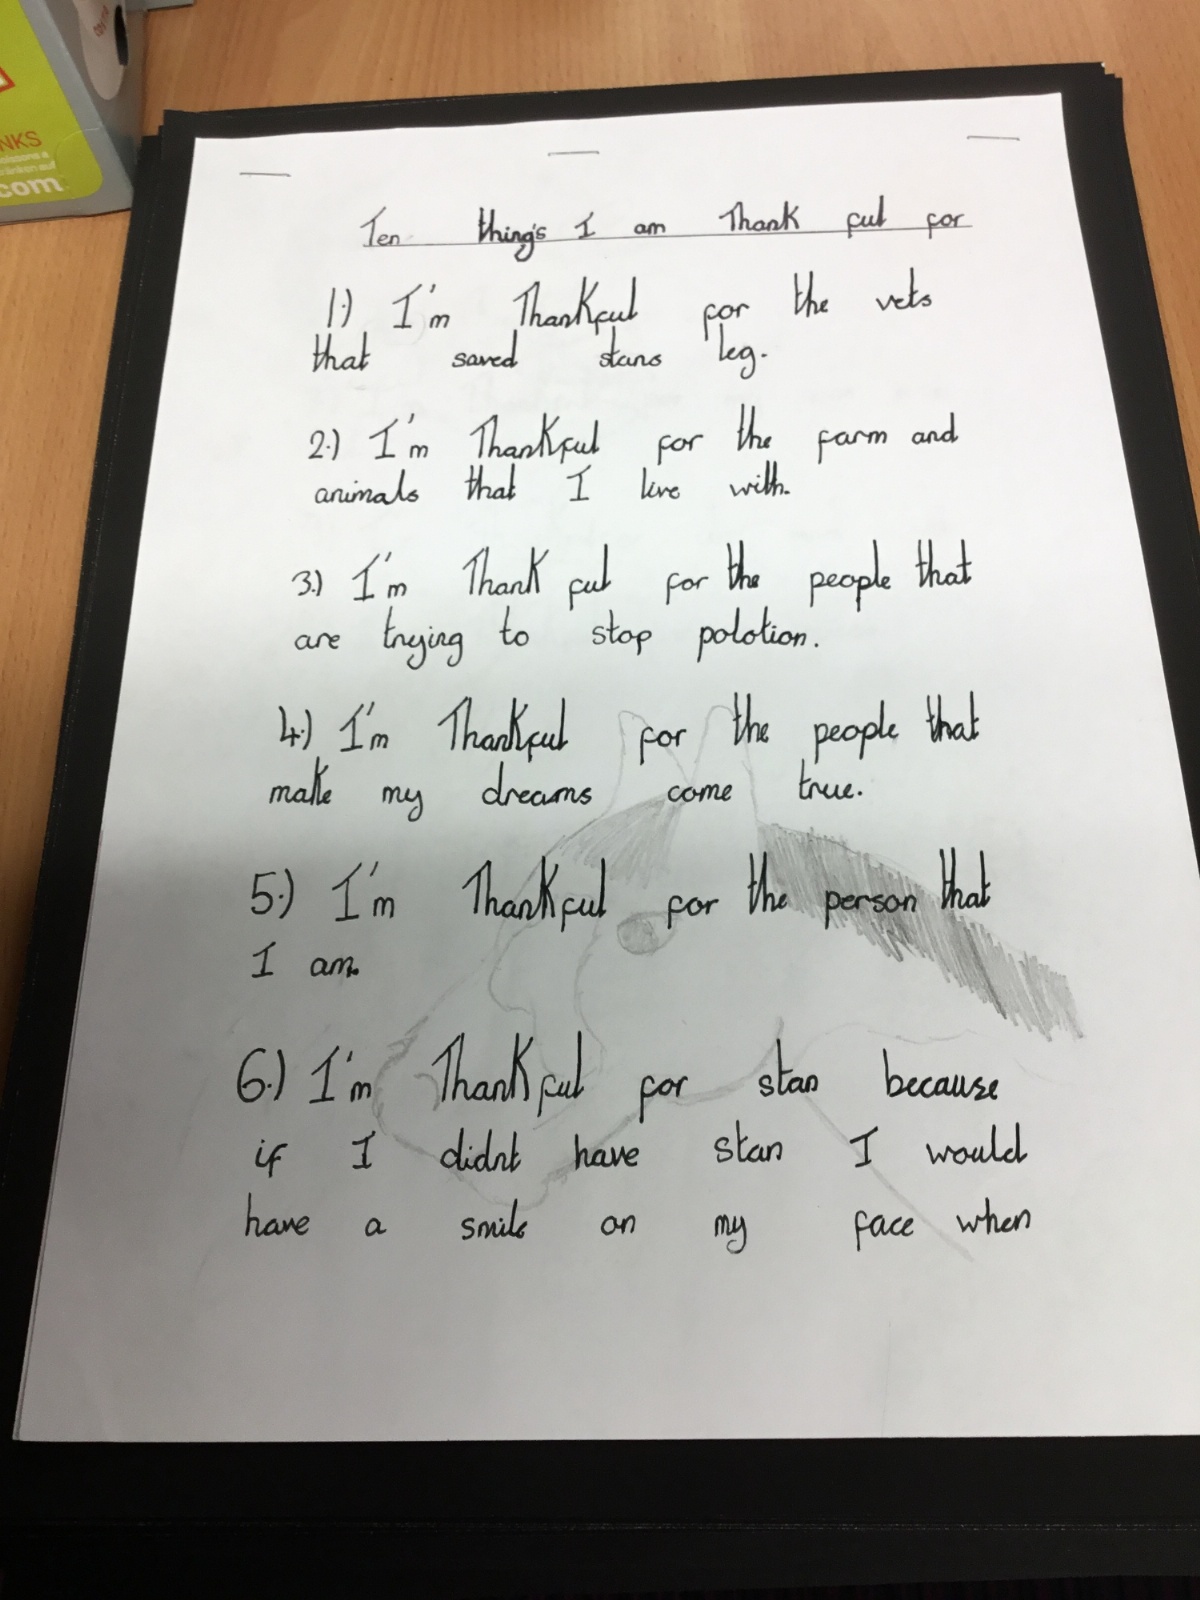 NKS
.com
Ten thing's I am Thank ful for
1.) I'm Thankful for the vets
that saved stans leg.
2.) I'm Thankful for the farm and
animals that I live with.
3.) I'm Thank ful for the people that
are trying to stop polotion.
4.) I'm Thankful for the people that
make my dreams come true.
5.) I'm Thankful for the person that
I am.
6.) I'm Thankful for stan because
if I didnt have stan I would
have a smile on my face when